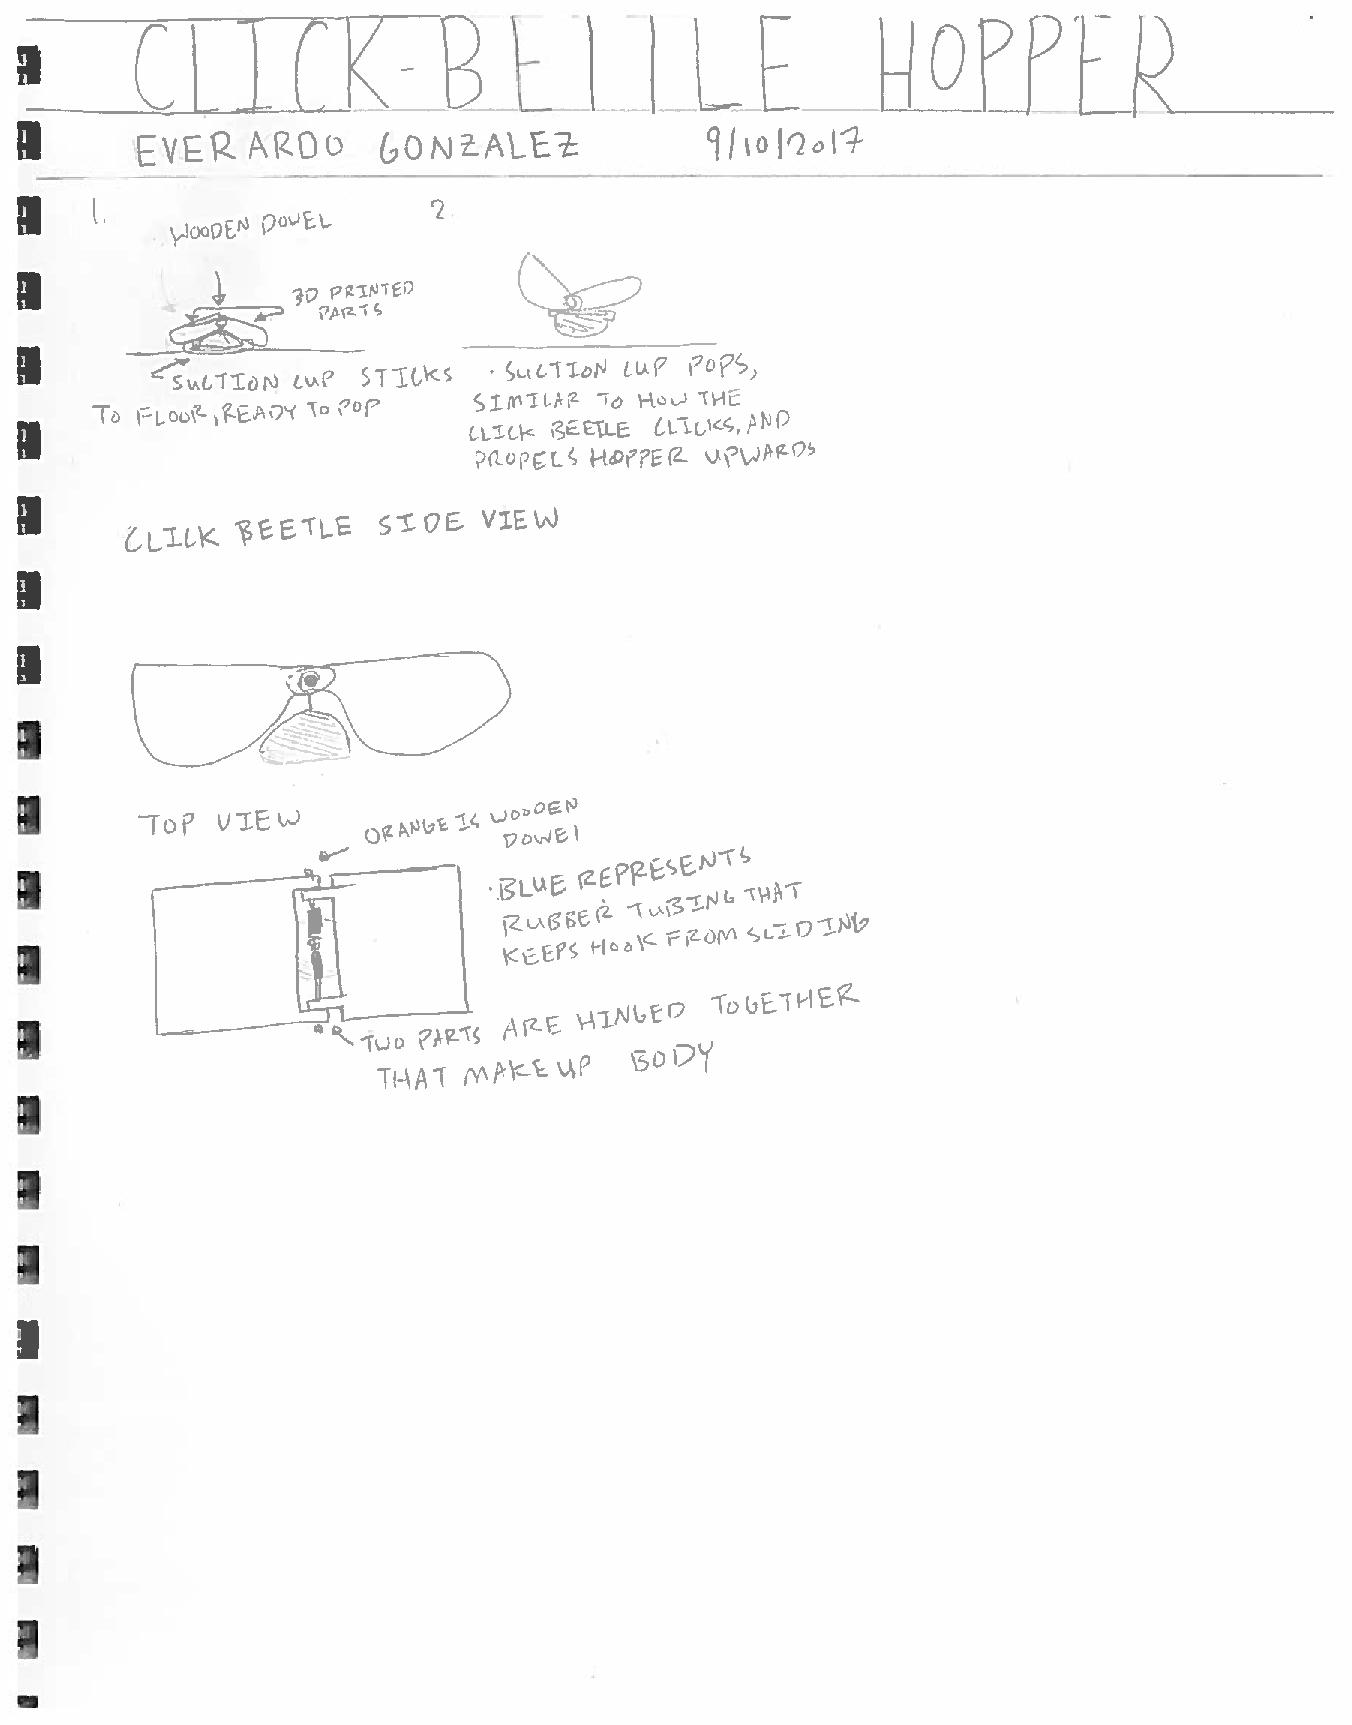 CLICK-BEETLE HOPPER
EVERARDO GONZALEZ 9/10/2017
1.
WOODEN DOWEL
3D PRINTED
PARTS
SUCTION CUP STICKS
TO FLOOR, READY TO POP
2.
· SUCTION CUP POPS,
SIMILAR TO HOW THE
CLICK BEETLE CLICKS, AND
PROPELS HOPPER UPWARDS
CLICK BEETLE SIDE VIEW
TOP VIEW
ORANGE IS WOODEN
DOWEL
· BLUE REPRESENTS
RUBBER TUBING THAT
KEEPS HOOK FROM SLIDING
TWO PARTS ARE HINGED TOGETHER
THAT MAKE UP BODY